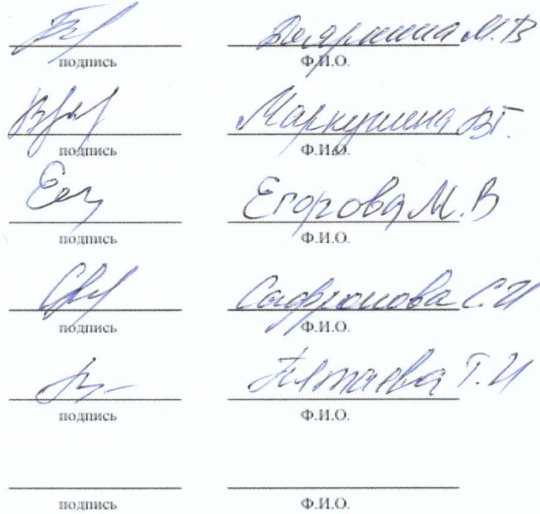 Бояркина М.В
подпись Ф.И.О.
Маркушина В.Г.
подпись Ф.И.О.
Егорова М.В
подпись Ф.И.О.
Сафронова С.И
подпись Ф.И.О.
Т.И
подпись Ф.И.О.
подпись Ф.И.О.